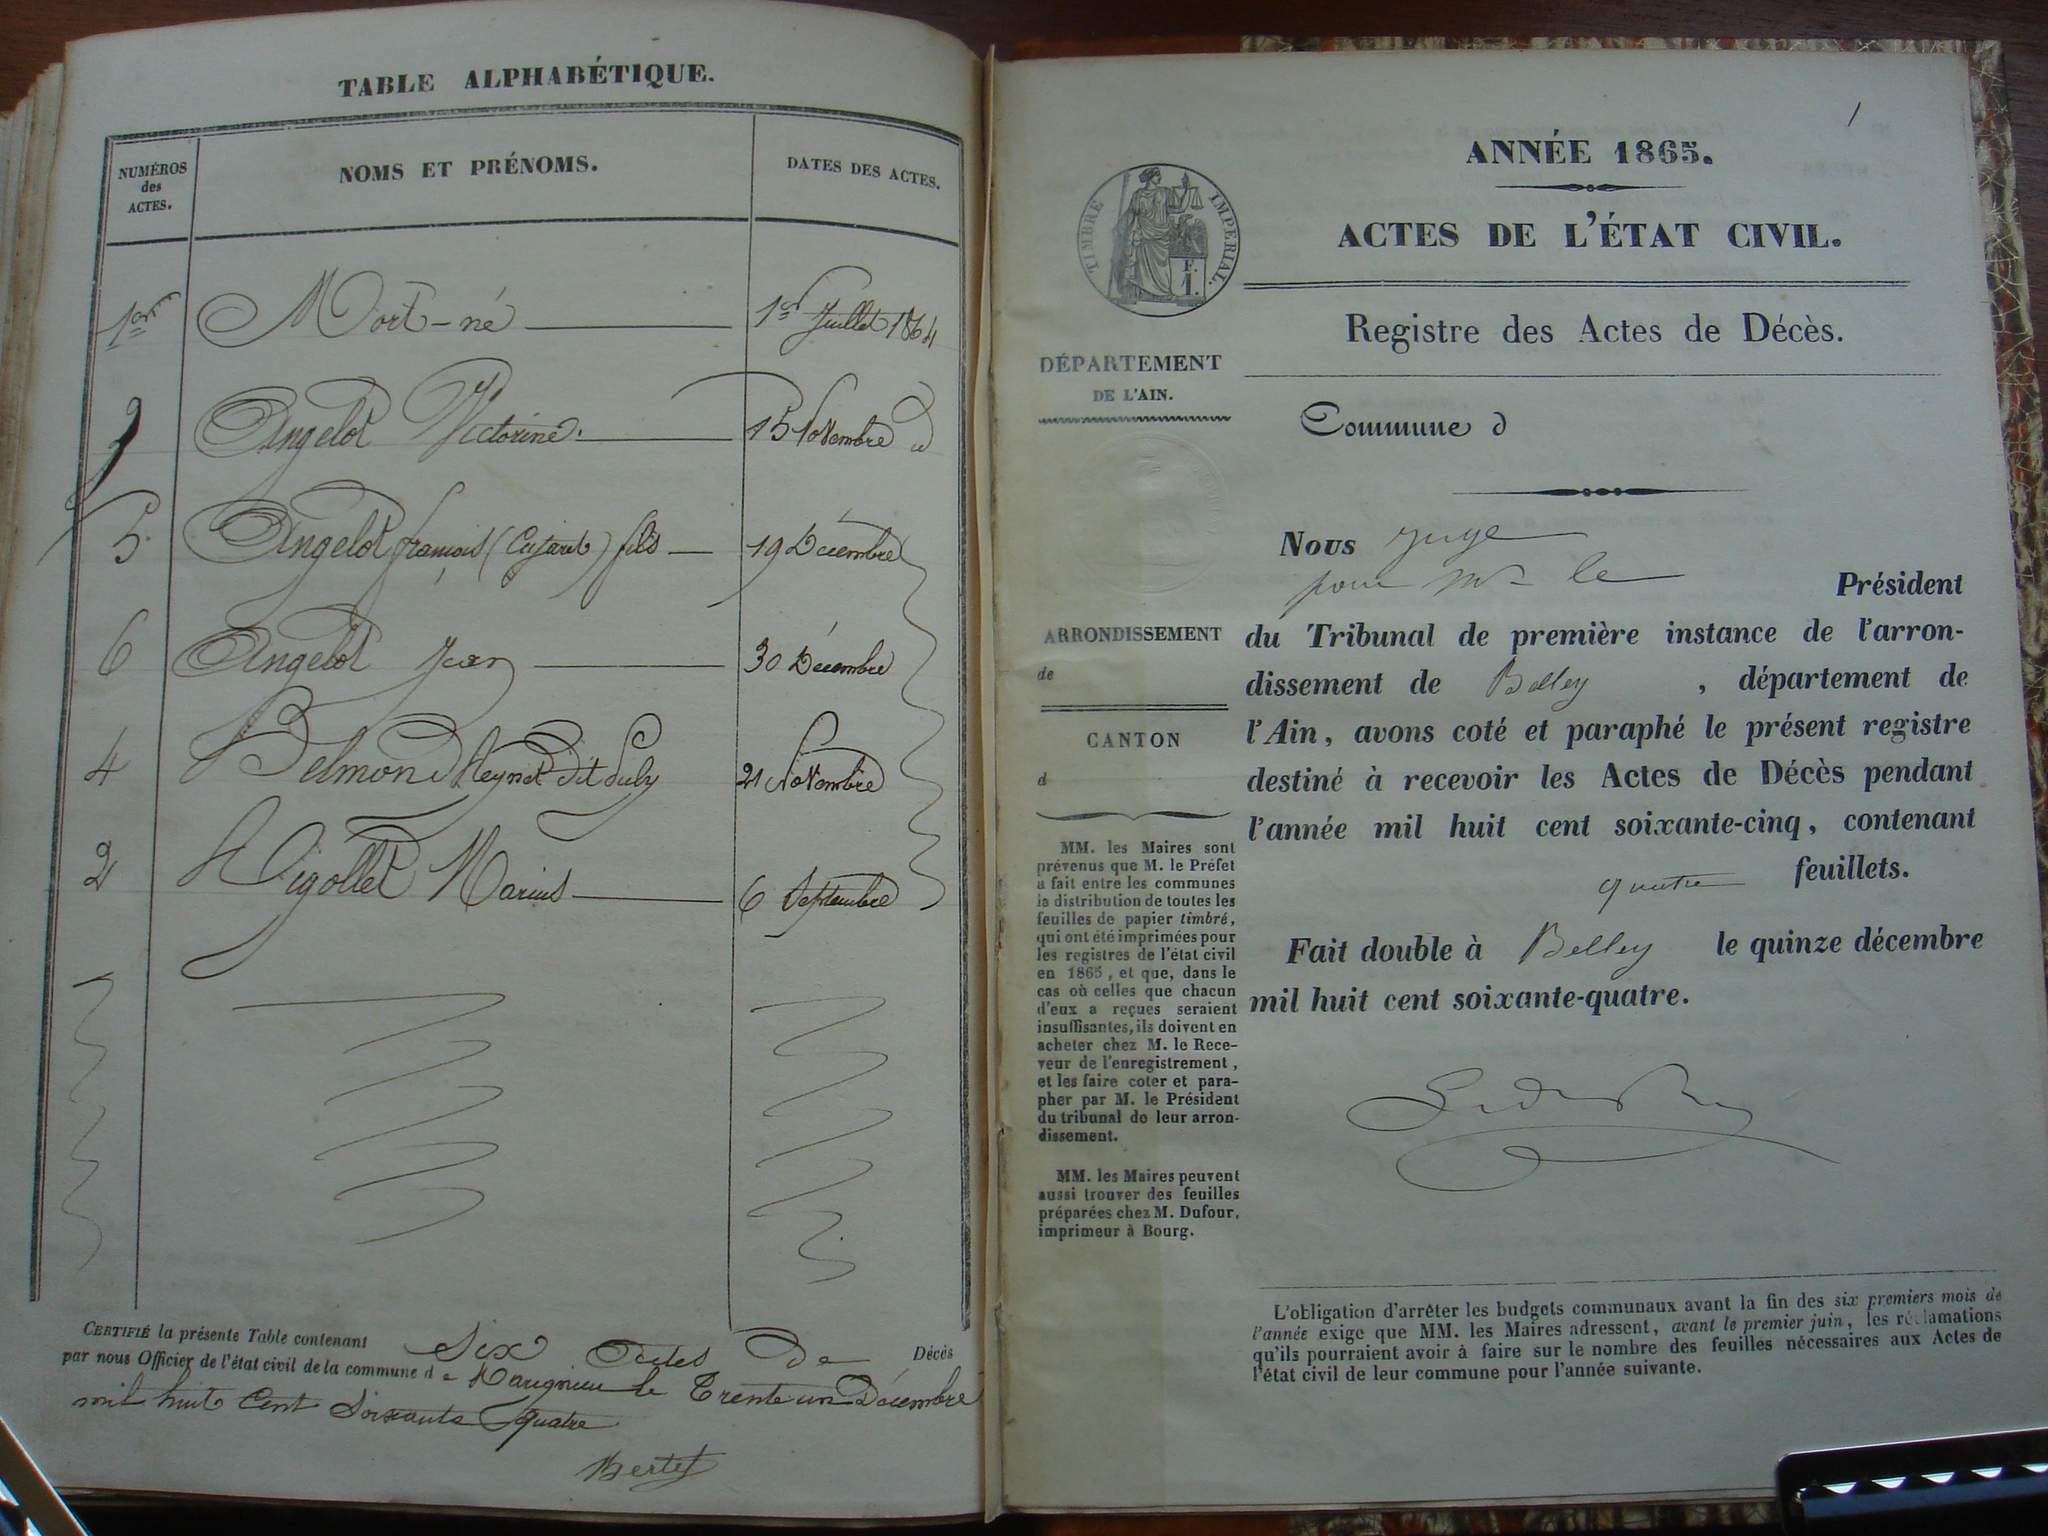 TABLE ALPHABÉTIQUE.
NUMÉROS
des
ACTES.
NOMS ET PRÉNOMS.
DATES DES ACTES.
1er Mort-né 1er Juillet 1864
3 Angelot Victorine. 15 Novembre d
5 Angelot françois (Cujaret) fils 19 Décembre
6 Angelot Jean 30 Décembre
4 Belmond dit 21 Novembre
2 Marius 6 Septembre
CERTIFIÉ la présente Table contenant Six actes de Décès
par nous Officier de l'état civil de la commune de le Trente un Décembre
mil huit Cent Soixante quatre
Bertet
1
ANNÉE 1865.
ACTES DE L'ÉTAT CIVIL.
TIMBRE IMPERIAL.
F.
1.
Registre des Actes de Décès.
DÉPARTEMENT
DE L'AIN.
Commune d
Nous Juge
pour Mr le Président
du Tribunal de première instance de l'arron-
dissement de Belley, département de
l'Ain, avons coté et paraphé le présent registre
destiné à recevoir les Actes de Décès pendant
l'année mil huit cent soixante-cinq, contenant
quatre feuillets.
Fait double à Belley le quinze décembre
mil huit cent soixante-quatre.
ARRONDISSEMENT
de
CANTON
d
MM. les Maires sont
prévenus que M. le Préfet
a fait entre les communes
la distribution de toutes les
feuilles de papier timbré,
qui ont été imprimées pour
les registres de l'état civil
en 1865, et que, dans le
cas où celles que chacun
d'eux a reçues seraient
insuffisantes, ils doivent en
acheter chez M. le Rece-
veur de l'enregistrement,
et les faire coter et para-
pher par M. le Président
du tribunal de leur arron-
dissement.
MM. les Maires peuvent
aussi trouver des feuilles
préparées chez M. Dufour,
imprimeur à Bourg.
L'obligation d'arrêter les budgets communaux avant la fin des six premiers mois de
l'année exige que MM. les Maires adressent, avant le premier juin, les réclamations
qu'ils pourraient avoir à faire sur le nombre des feuilles nécessaires aux Actes de
l'état civil de leur commune pour l'année suivante.